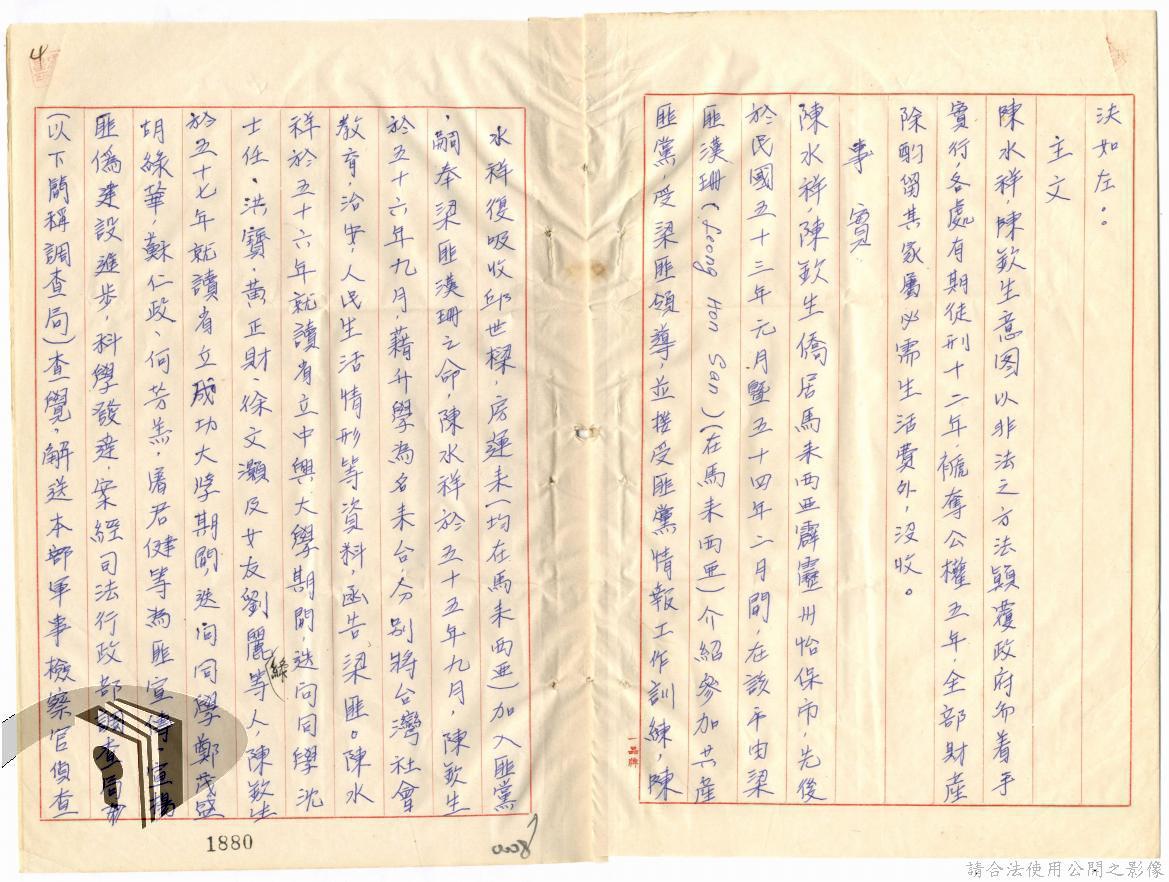 決如左。
主文
陳水祥,陳欽生意图以非法之方法顛覆政府而着手
實行,各處有期徒刑十二年,褫奪公權五年,全部財產
除酌留其家屬必需生活費外,沒收。
事實
陳水祥,陳欽生僑居馬来西亜霹靂州怡保市,先後
於民國五十三年元月暨五十四年二月間,在該市由梁
匪漢珊(Leong Hon San)(在馬来西亜)介紹參加共產
匪黨,受梁匪領導,並接受匪黨情報工作訓練,陳
水祥復吸收邱世樑,房運来(均在馬来西亜)加入匪黨
,嗣奉梁匪漢珊之命,陳水祥於五十五年九月,陳欽生
於五十六年九月,藉升學為名来台,分別將台灣社會
教育,治安,人民生活情形等資料函告梁匪。陳水
祥於五十六年就讀省立中興大學期間,迭向同學沈
士任、洪寶、黃正財、徐文灝及女友劉麗絲等人,陳欽生
於五十七年就讀省立成功大學期間,迭向同學鄭茂盛
胡綠華,蘇仁政、何芳羔,屠君健等為匪宣傳,宣揚
匪偽建設進步,科學發達,案經司法行政部調查局
(以下簡稱調查局)查覺,解送本部軍事檢察官偵查
4
1880
一品牌
請合法使用公開之影像